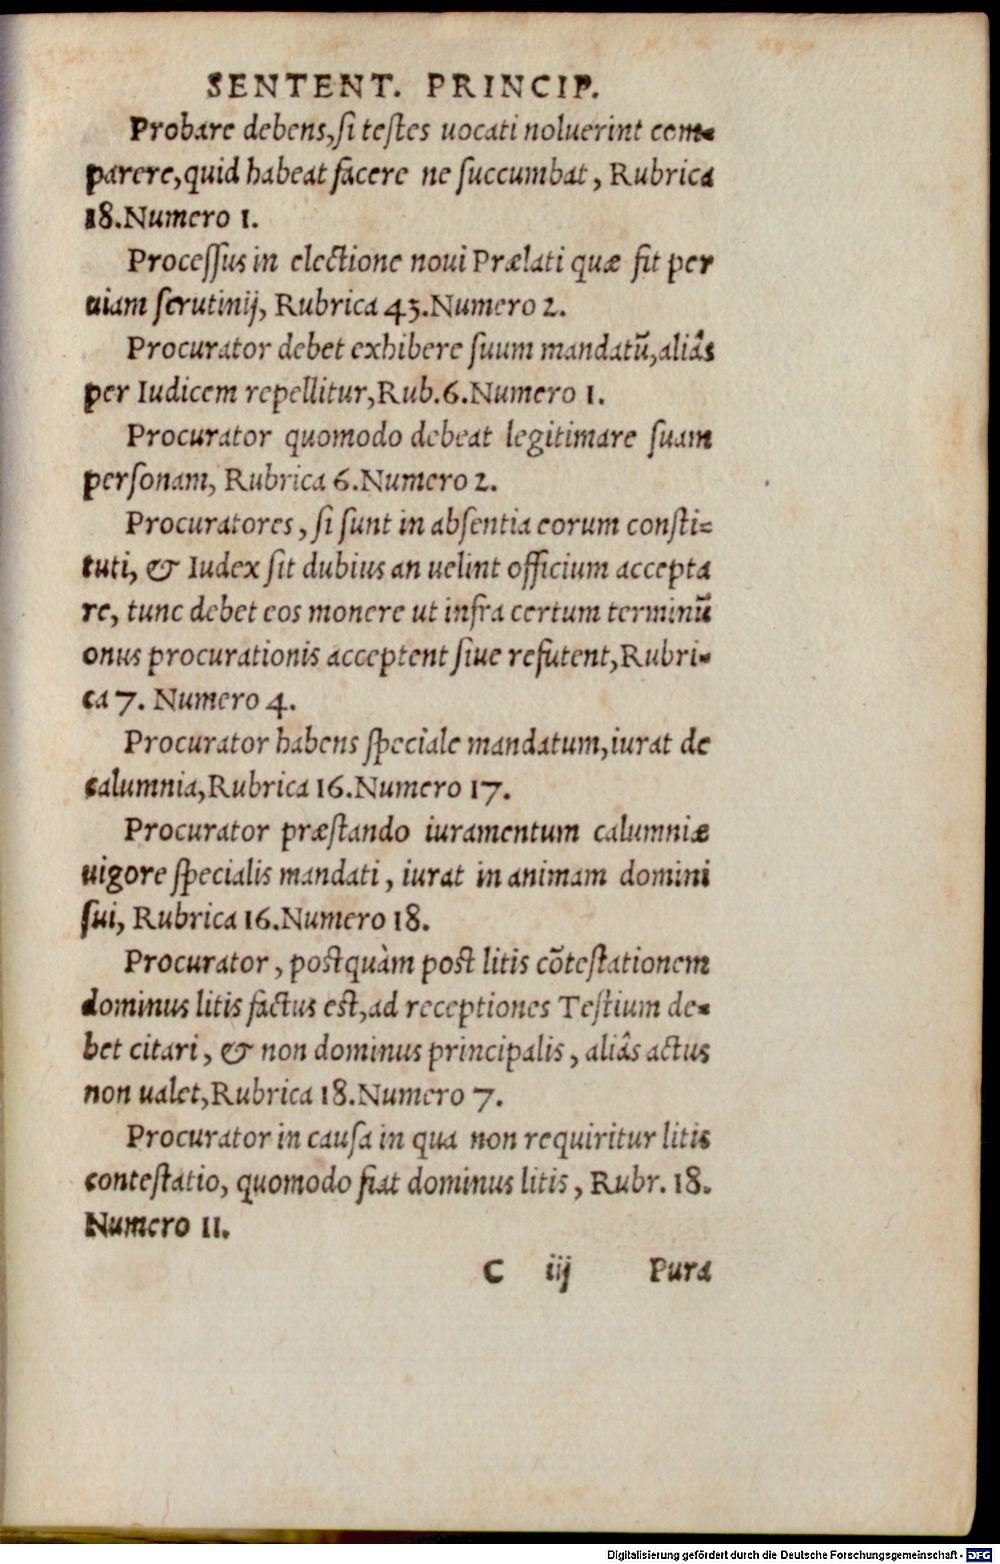 SENTENT. PRINCIP.
Probare debens, ſi teſtes uocati noluerint com-
parere, quid habeat facere ne ſuccumbat, Rubrica
18. Numero 1.
Proceſſus in electione noui Prælati quæ fit per
uiam ſcrutinij, Rubrica 43. Numero 2.
Procurator debet exhibere ſuum mandatũ, aliâs
per Iudicem repellitur, Rub. 6. Numero 1.
Procurator quomodo debeat legitimare ſuam
perſonam, Rubrica 6. Numero 2.
Procuratores, ſi ſunt in abſentia eorum conſti-
tuti, & Iudex ſit dubius an uelint officium accepta
re, tunc debet eos monere ut infra certum terminũ
onus procurationis acceptent ſiue refutent, Rubri-
ca 7. Numero 4.
Procurator habens ſpeciale mandatum, iurat de
calumnia, Rubrica 16. Numero 17.
Procurator præſtando iuramentum calumniæ
uigore ſpecialis mandati, iurat in animam domini
ſui, Rubrica 16. Numero 18.
Procurator, poſtquàm poſt litis cõteſtationem
dominus litis factus eſt, ad receptiones Teſtium de-
bet citari, & non dominus principalis, aliâs actus
non ualet, Rubrica 18. Numero 7.
Procurator in cauſa in qua non requiritur litis
conteſtatio, quomodo fiat dominus litis, Rubr. 18.
Numero 11.
C iij Pura
Digitalisierung gefördert durch die Deutsche Forschungsgemeinschaft - DFG